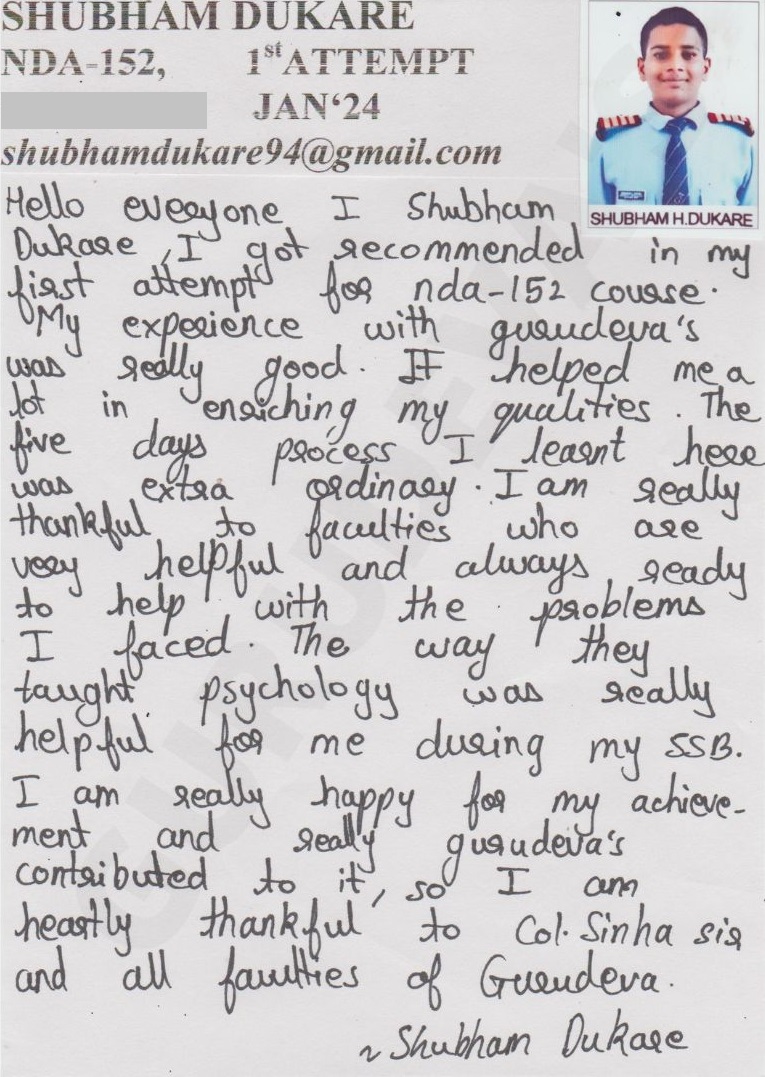 SHUBHAM DUKARE
NDA-152, 1st ATTEMPT
JAN‘24
shubhamdukare94@gmail.com
SHUBHAM H.DUKARE
Hello everyone I Shubham
Dukare, I got recommended in my
first attempt for nda-152 course.
My experience with gurudeva's
was really good. It helped me a
lot in enriching my qualities. The
five days process I learnt here
was extra ordinary. I am really
thankful to faculties who are
very helpful and always ready
to help with the problems
I faced. The way they
taught psychology was really
helpful for me during my SSB.
I am really happy for my achieve-
ment and really gurudeva's
contributed to it, so I am
heartly thankful to Col. Sinha sir
and all faculties of Gurudeva.
~ Shubham Dukare